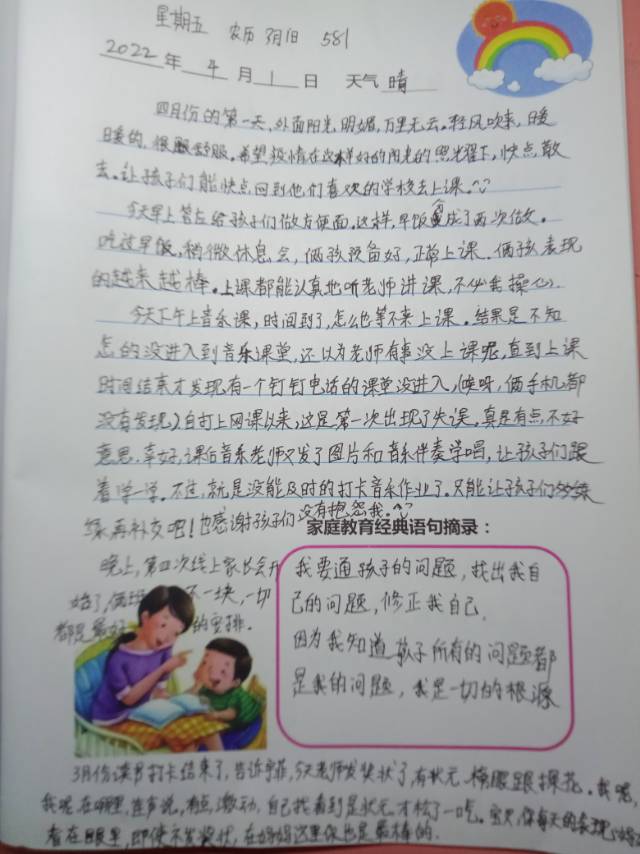 星期五 农历三月初一 581
2022年 4月 1日 天气 晴
四月份的第一天,外面阳光明媚,万里无云。轻风吹来,暖
暖的,很舒服。希望疫情在这样好的阳光的照耀下,快点散
去。让孩子们能快点回到他们喜欢的学校去上课。^^
今天早上答应给孩子们做方便面。这样,早饭变成了两次做。
吃过早饭,稍微休息会,俩孩预备好,正常上课。俩孩表现
的越来越棒。上课都能认真地听老师讲课,不必去操心。
今天下午上音乐课,时间到了,怎么也等不来上课。结果是不知
怎的没进入到音乐课堂,还以为老师有事没上课呢,直到上课
时间结束才发现有一个钉钉电话的课堂没进入,(唉呀,俩手机都
没有发现)自打上网课以来,这是第一次出现了失误。真是有点不好
意思。幸好,课后音乐老师又发了图片和音乐伴奏学唱,让孩子们跟
着学一学。不过,就是没能及时的打卡音乐作业了。只能让孩子们多练
练再补交吧!也感谢孩子们没有抱怨我。^^
家庭教育经典语句摘录:
晚上,第四次线上家长会开
始了,俩班不一块,一切
都是最好的安排。
我要通孩子的问题,找出我自
己的问题,修正我自己。
因为我知道孩子所有的问题都
是我的问题,我是一切的根源
3月份读书打卡结束了,告诉宇菲,今天老师发奖状了,有状元、榜眼跟探花。我呢,
我呢,在哪里,连声说,有点激动,自己找看到是状元才松了一口气。宝贝,你每天的表现妈妈
看在眼里,即使不发奖状,在妈妈这里你也是最棒的。